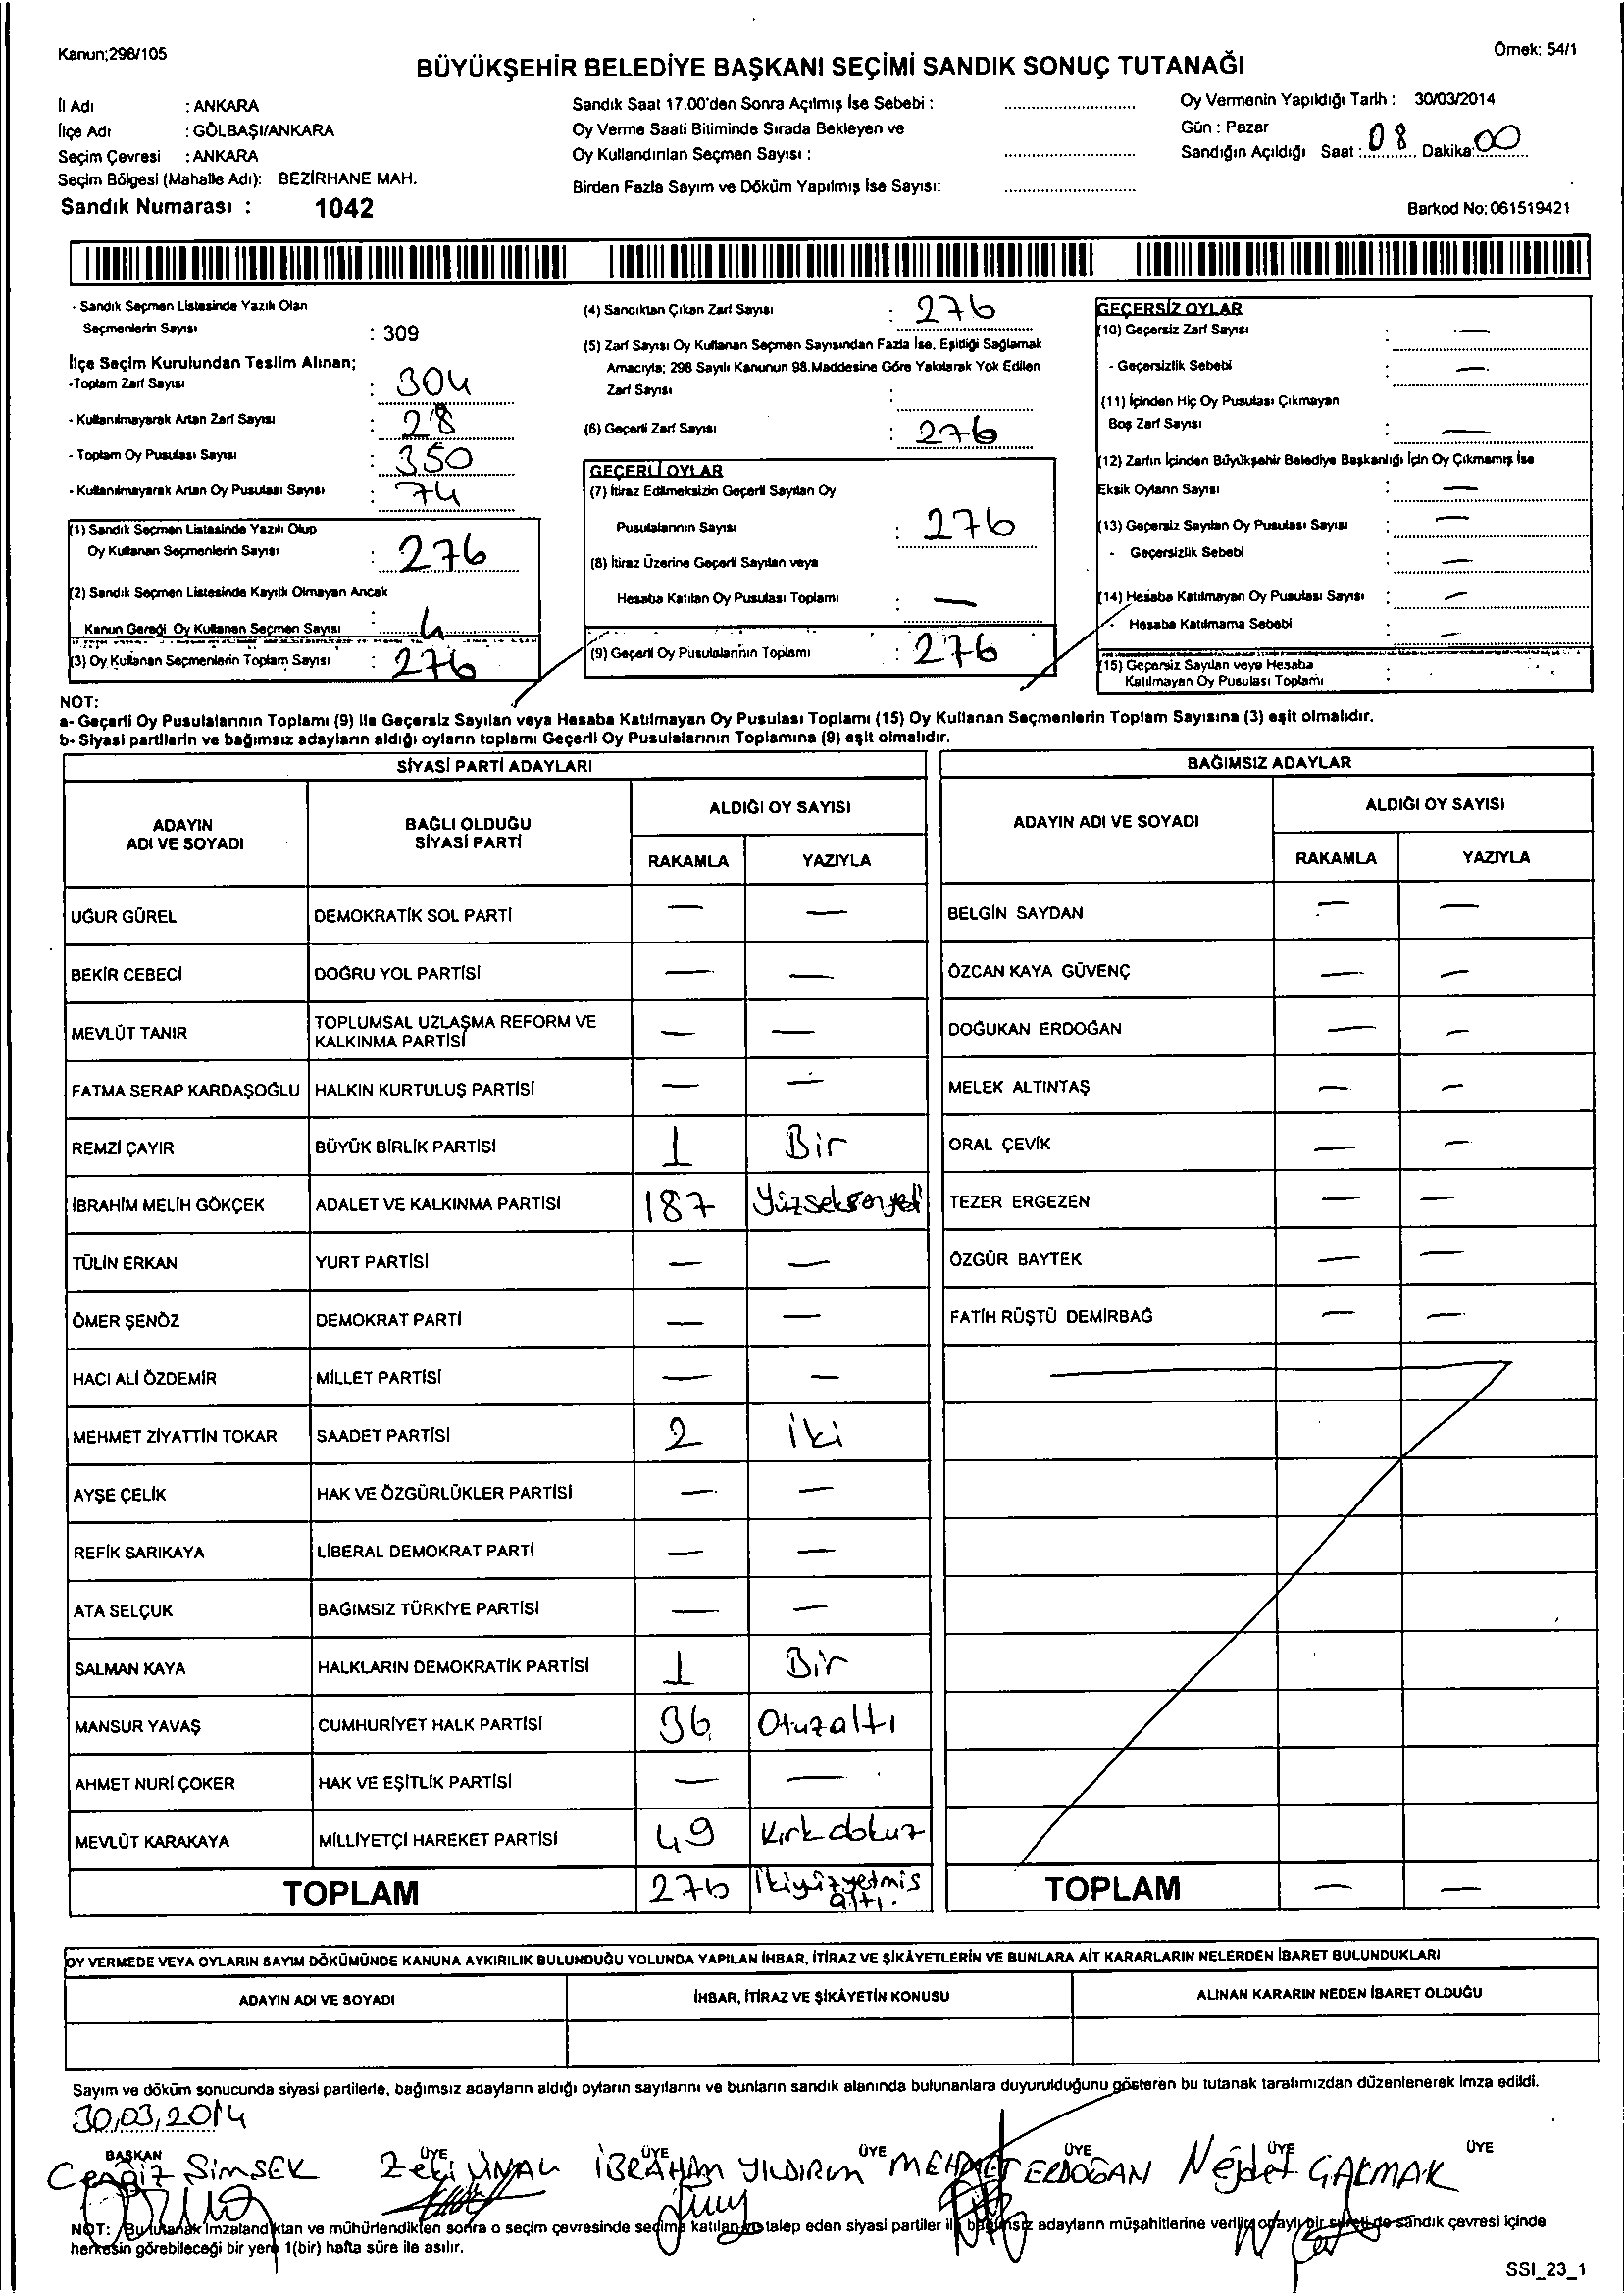 Kanun;298/105
Örnek: 54/1
BÜYÜKŞEHİR BELEDİYE BAŞKANI SEÇİMİ SANDIK SONUÇ TUTANAĞI
İl Adı : ANKARA
İlçe Adı : GÖLBAŞI/ANKARA
Seçim Çevresi : ANKARA
Seçim Bölgesi (Mahalle Adı): BEZİRHANE MAH.
Sandık Numarası : 1042
Sandık Saat 17.00'den Sonra Açılmış İse Sebebi :
Oy Verme Saati Bitiminde Sırada Bekleyen ve
Oy Kullandırılan Seçmen Sayısı :
Birden Fazla Sayım ve Döküm Yapılmış İse Sayısı:
Oy Vermenin Yapıldığı Tarih : 30/03/2014
Gün : Pazar
Sandığın Açıldığı Saat : 08 Dakika: 00
Barkod No: 061519421
- Sandık Seçmen Listesinde Yazılı Olan
Seçmenlerin Sayısı : 309
İlçe Seçim Kurulundan Teslim Alınan;
-Toplam Zarf Sayısı : 304
- Kullanılmayarak Artan Zarf Sayısı : 28
- Toplam Oy Pusulası Sayısı : 350
- Kullanılmayarak Artan Oy Pusulası Sayısı : 74
(1) Sandık Seçmen Listesinde Yazılı Olup
Oy Kullanan Seçmenlerin Sayısı : 276
(2) Sandık Seçmen Listesinde Kayıtlı Olmayan Ancak
Kanun Gereği Oy Kullanan Seçmen Sayısı : 4
(3) Oy Kullanan Seçmenlerin Toplam Sayısı : 276
(4) Sandıktan Çıkan Zarf Sayısı : 276
(5) Zarf Sayısı Oy Kullanan Seçmen Sayısından Fazla İse, Eşitliği Sağlamak
Amacıyla; 298 Sayılı Kanunun 98.Maddesine Göre Yakılarak Yok Edilen
Zarf Sayısı :
(6) Geçerli Zarf Sayısı : 276
GEÇERLİ OYLAR
(7) İtiraz Edilmeksizin Geçerli Sayılan Oy
Pusulalarının Sayısı : 276
(8) İtiraz Üzerine Geçerli Sayılan veya
Hesaba Katılan Oy Pusulası Toplamı : —
(9) Geçerli Oy Pusulalarının Toplamı : 276
GEÇERSİZ OYLAR
(10) Geçersiz Zarf Sayısı : —
- Geçersizlik Sebebi : —
(11) İçinden Hiç Oy Pusulası Çıkmayan
Boş Zarf Sayısı : —
(12) Zarfın İçinden Büyükşehir Belediye Başkanlığı İçin Oy Çıkmamış İse
Eksik Oyların Sayısı : —
(13) Geçersiz Sayılan Oy Pusulası Sayısı : —
- Geçersizlik Sebebi : —
(14) Hesaba Katılmayan Oy Pusulası Sayısı : —
- Hesaba Katılmama Sebebi : —
(15) Geçersiz Sayılan veya Hesaba
Katılmayan Oy Pusulası Toplamı :
NOT:
a- Geçerli Oy Pusulalarının Toplamı (9) ile Geçersiz Sayılan veya Hesaba Katılmayan Oy Pusulası Toplamı (15) Oy Kullanan Seçmenlerin Toplam Sayısına (3) eşit olmalıdır.
b- Siyasi partilerin ve bağımsız adayların aldığı oyların toplamı Geçerli Oy Pusulalarının Toplamına (9) eşit olmalıdır.
SİYASİ PARTİ ADAYLARI
ADAYIN ADI VE SOYADI BAĞLI OLDUĞU SİYASİ PARTİ ALDIĞI OY SAYISI
RAKAMLA YAZIYLA
UĞUR GÜREL DEMOKRATİK SOL PARTİ — —
BEKİR CEBECİ DOĞRU YOL PARTİSİ — —
MEVLÜT TANIR TOPLUMSAL UZLAŞMA REFORM VE KALKINMA PARTİSİ — —
FATMA SERAP KARDAŞOĞLU HALKIN KURTULUŞ PARTİSİ — —
REMZİ ÇAYIR BÜYÜK BİRLİK PARTİSİ 1 Bir
İBRAHİM MELİH GÖKÇEK ADALET VE KALKINMA PARTİSİ 187 Yüzseksenyedi
TÜLİN ERKAN YURT PARTİSİ — —
ÖMER ŞENÖZ DEMOKRAT PARTİ — —
HACI ALİ ÖZDEMİR MİLLET PARTİSİ — —
MEHMET ZİYATTİN TOKAR SAADET PARTİSİ 2 iki
AYŞE ÇELİK HAK VE ÖZGÜRLÜKLER PARTİSİ — —
REFİK SARIKAYA LİBERAL DEMOKRAT PARTİ — —
ATA SELÇUK BAĞIMSIZ TÜRKİYE PARTİSİ — —
SALMAN KAYA HALKLARIN DEMOKRATİK PARTİSİ 1 Bir
MANSUR YAVAŞ CUMHURİYET HALK PARTİSİ 36 Otuzaltı
AHMET NURİ ÇOKER HAK VE EŞİTLİK PARTİSİ — —
MEVLÜT KARAKAYA MİLLİYETÇİ HAREKET PARTİSİ 49 Kırkdokuz
TOPLAM 276 İkiyüzyetmis altı.
BAĞIMSIZ ADAYLAR
ADAYIN ADI VE SOYADI ALDIĞI OY SAYISI
RAKAMLA YAZIYLA
BELGİN SAYDAN — —
ÖZCAN KAYA GÜVENÇ — —
DOĞUKAN ERDOĞAN — —
MELEK ALTINTAŞ — —
ORAL ÇEVİK — —
TEZER ERGEZEN — —
ÖZGÜR BAYTEK — —
FATİH RÜŞTÜ DEMİRBAĞ — —
TOPLAM — —
OY VERMEDE VEYA OYLARIN SAYIM DÖKÜMÜNDE KANUNA AYKIRILIK BULUNDUĞU YOLUNDA YAPILAN İHBAR, İTİRAZ VE ŞİKÂYETLERİN VE BUNLARA AİT KARARLARIN NELERDEN İBARET BULUNDUKLARI
ADAYIN ADI VE SOYADI İHBAR, İTİRAZ VE ŞİKÂYETİN KONUSU ALINAN KARARIN NEDEN İBARET OLDUĞU
Sayım ve döküm sonucunda siyasi partilerle, bağımsız adayların aldığı oyların sayılarını ve bunların sandık alanında bulunanlara duyurulduğunu gösteren bu tutanak tarafımızdan düzenlenerek imza edildi.
30,03,2014
BAŞKAN ÜYE ÜYE ÜYE ÜYE ÜYE ÜYE
Cengiz SimSEK Zeki ÜNAL İBRAHİM YILDIRIM MEHMET ERDOĞAN Nejdet ÇAKMAK
NOT: Bu tutanak imzalandıktan ve mühürlendikten sonra o seçim çevresinde seçime katılan ve talep eden siyasi partiler ile bağımsız adayların müşahitlerine verilir, onaylı bir sureti de sandık çevresi içinde
herkesin görebileceği bir yere 1(bir) hafta süre ile asılır.
SSI_23_1